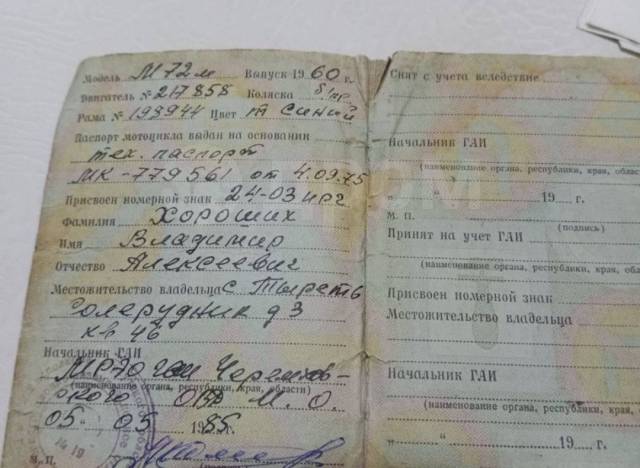 Модель М72м Выпуск 1960 г.
Двигатель № 217858 Коляска б/нр
Рама № 198944 Цвет т синий
Паспорт мотоцикла выдан на основании
тех. паспорт
МК-779561 от 4.09.75
Присвоен номерной знак 24-03 ирг
Фамилия Хороших
Имя Владимир
Отчество Алексеевич
Местожительство владельца с Тыреть
Солерудник д 3
кв 46
Начальник ГАИ
МРЭО ГАИ Черемхов-
(наименование органа, республики, края, области)
ского ОВД И. О.
05 " 05 1985г.
М. П.
Снят с учета вследствие
Начальник ГАИ
(наименование органа, республики, края, облас
" " 19 г.
М. П. (подпись)
Принят на учет ГАИ
(наименование органа, республики, края, об
Присвоен номерной знак
Местожительство владельца
Начальник ГАИ
(наименование органа, республики, края, област
" " 19 г.